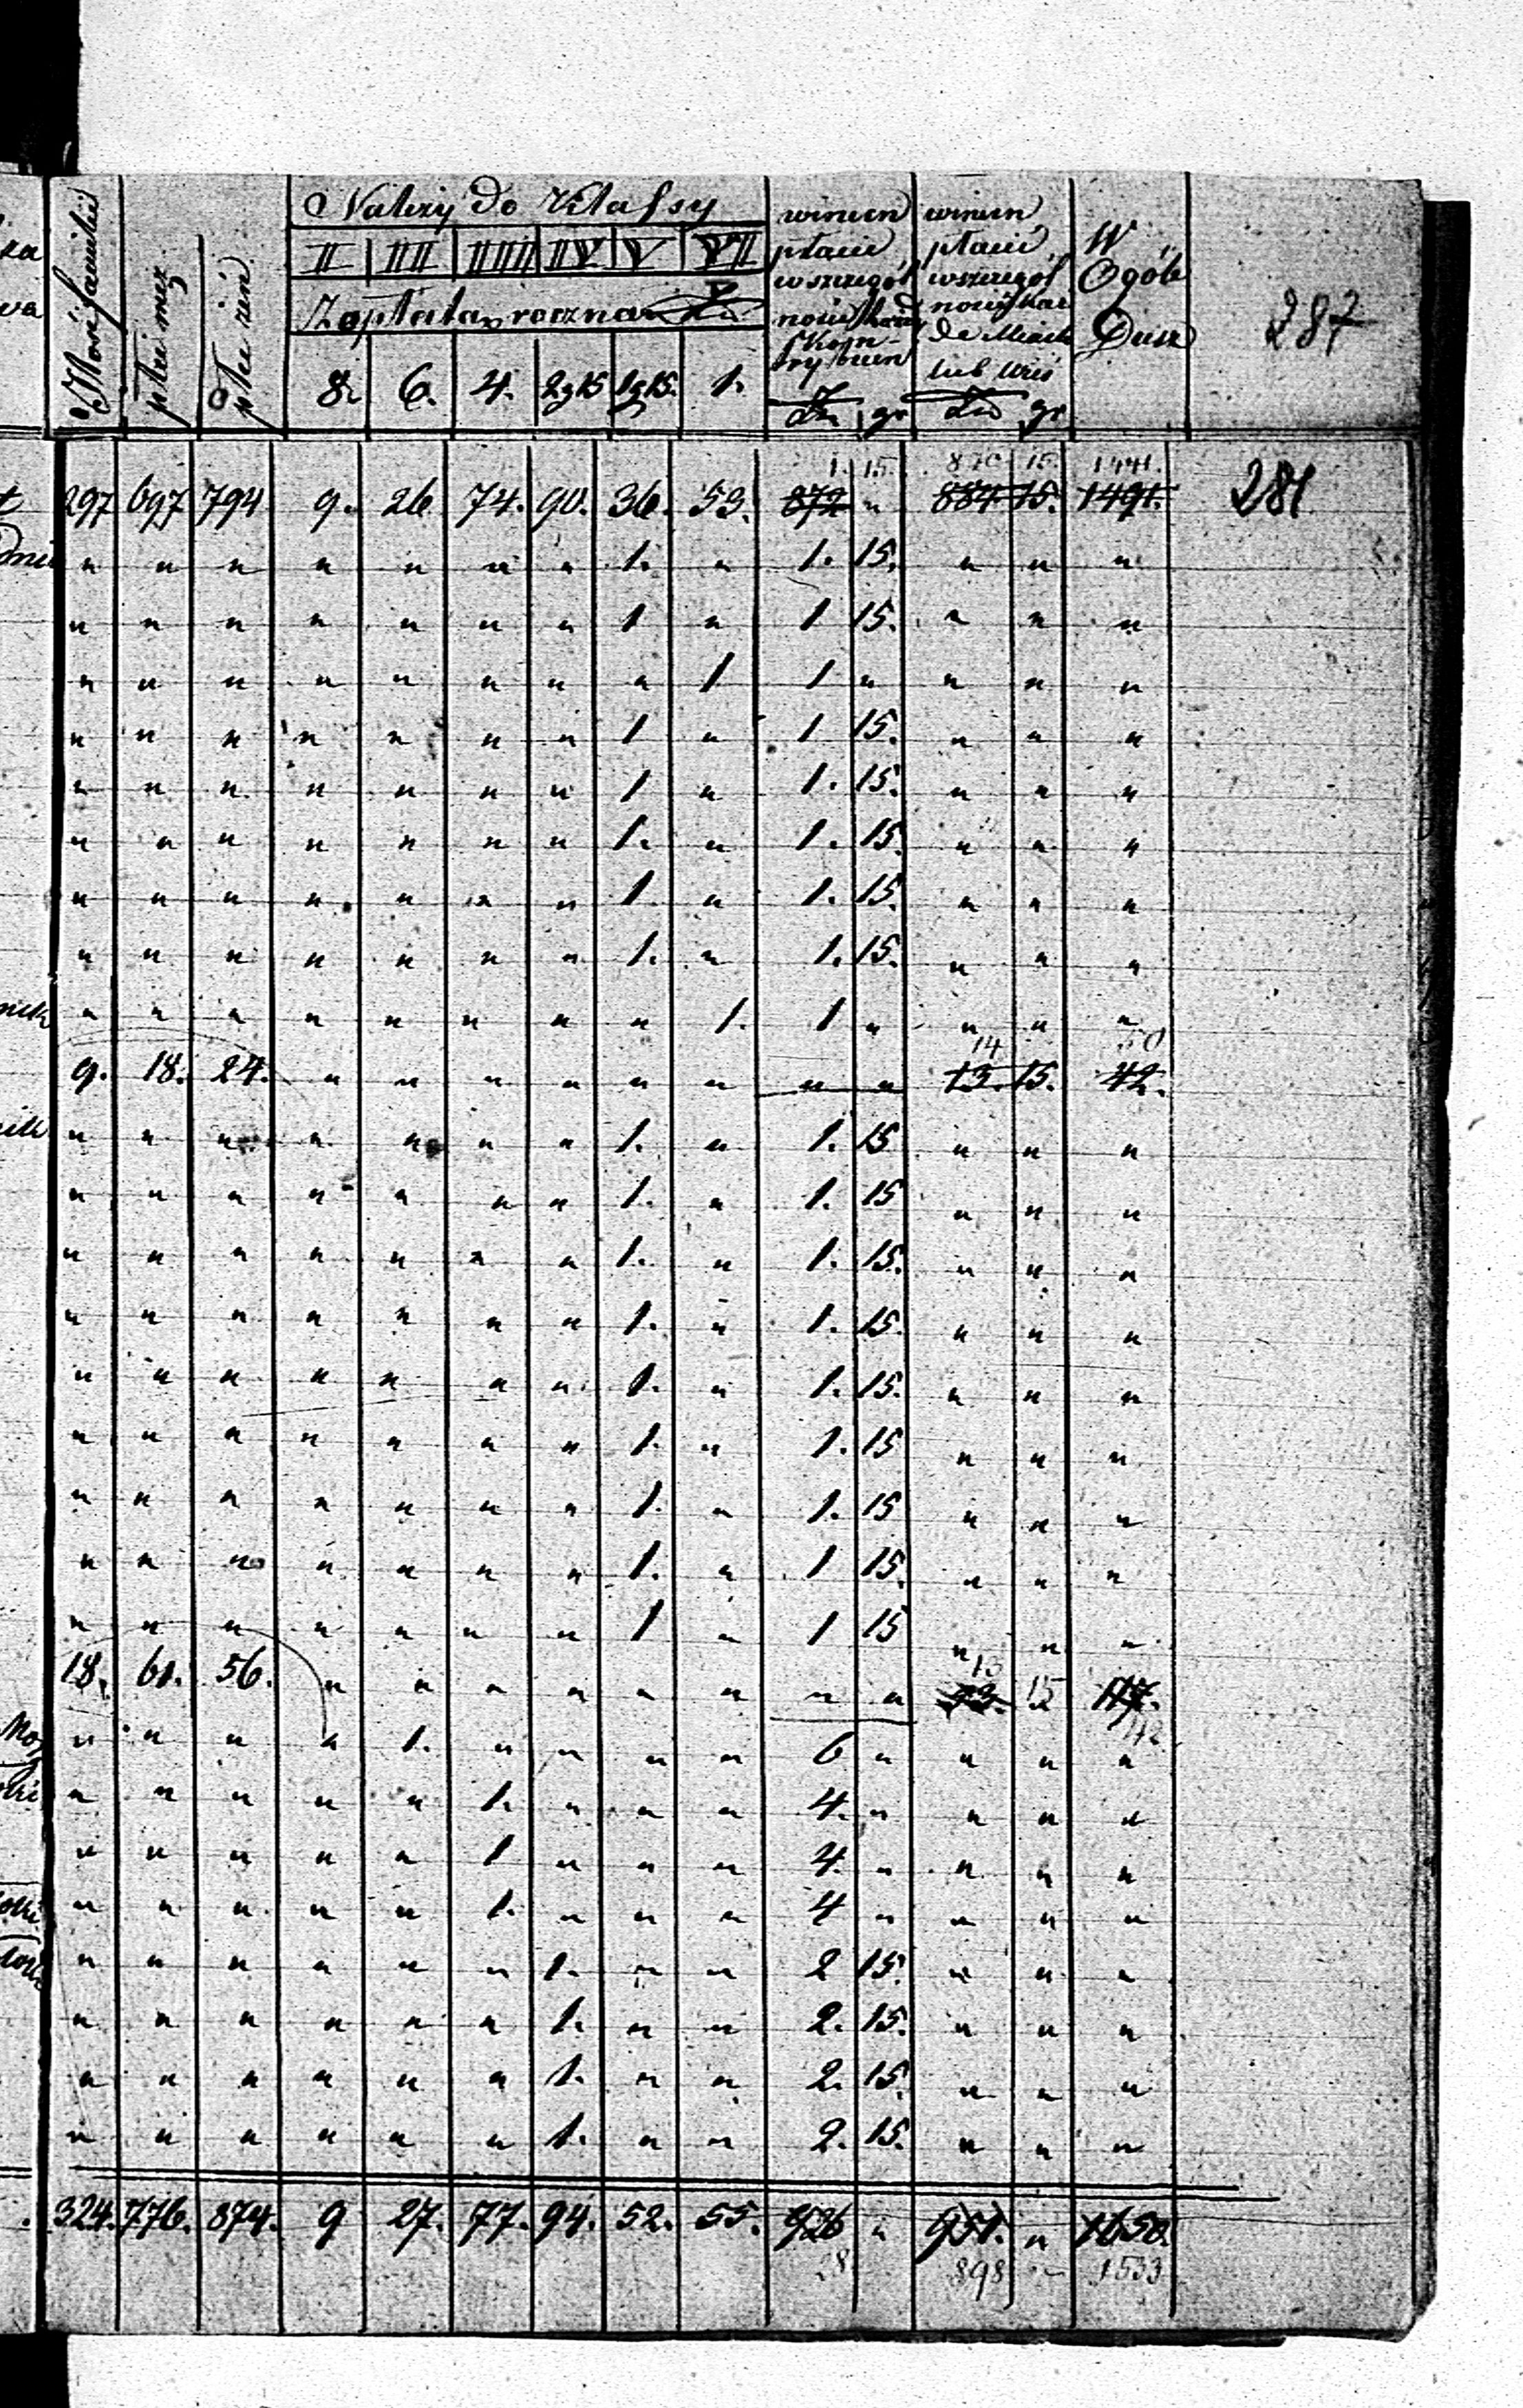 Ilość familii
płci męz.
płci żeń.
Należy do Klassy
II III IIII IV V VI
Zapłata roczna Zł.
8. 6. 4. 2g15 1g15. 1.
winien płacić wszczegól
winien płacić wszczegól
W Ogóle Dusz
287
Zł. gr Zł. gr
1. 15. 870 15. 1441.
297 697 794 9. 26 74. 90. 36. 53. 872 " 884 15. 1491. 281
" " " " " " " 1. " 1. 15. " " "
" " " " " " " 1 " 1 15. " " "
" " " " " " " " 1 1 " " " "
" " " " " " " 1 " 1 15. " " "
" " " " " " " 1 " 1. 15. " " "
" " " " " " " 1. " 1. 15. " " "
" " " " " " " 1. " 1. 15. " " "
" " " " " " " 1. " 1. 15. " " "
" " " " " " " " 1. 1 " " " "
14 50
9. 18. 24. " " " " " " " " 13. 15. 42.
" " " " " " " 1. " 1. 15 " " "
" " " " " " " 1. " 1. 15 " " "
" " " " " " " 1. " 1. 15. " " "
" " " " " " " 1. " 1. 15. " " "
" " " " " " " 1. " 1. 15. " " "
" " " " " " " 1. " 1. 15 " " "
" " " " " " " 1. " 1. 15 " " "
" " " " " " " 1. " 1 15. " " "
" " " " " " " 1 " 1 15 " " "
13
18. 61. 56. " " " " " " " " 15 117.
42
" " " " 1. " " " " 6 " " " "
" " " " " 1. " " " 4. " " " "
" " " " " 1 " " " 4. " " " "
" " " " " 1. " " " 4 " " " "
" " " " " " 1. " " 2 15. " " "
" " " " " " 1. " " 2. 15. " " "
" " " " " " 1. " " 2. 15. " " "
" " " " " " 1. " " 2. 15. " " "
324. 776. 874. 9 27. 77. 94. 52. 55. 926 " 951. " 1650.
28 898 " 1533